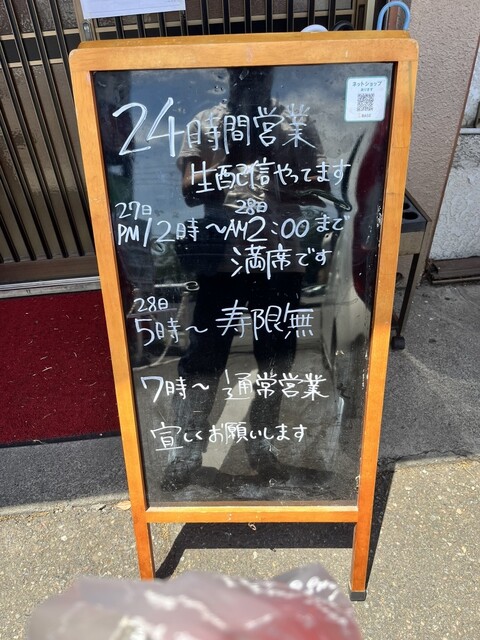 ネットショップ
あります
24時間営業
生配信やってます
27日 28日
PM12時〜AM2:00まで
満席です
28日
5時〜 寿限無
7時〜 通常営業
宜しくお願いします